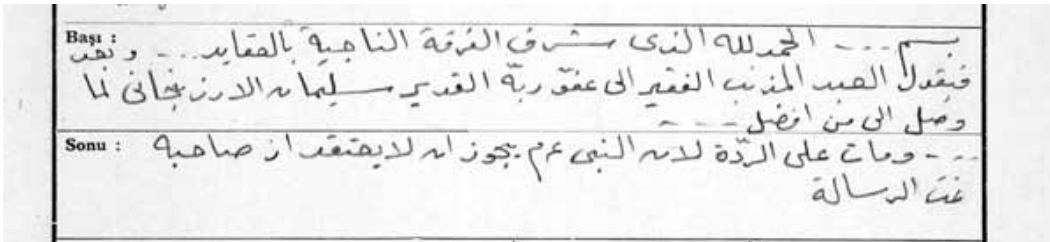 Başı : بسم .... الحمد لله الذى شرف الفرقة الناجية بالعقايد .... وبعد
فيقول العبد المذنب الفقير الى عفو ربّه القدير سليمان الارزنجانى لما
وصل الى من افضل ....
Sonu : ... ومات على الردّة لان النبى عم يجوز ان لا يعتقد ان صاحبه
تمت الرسالة